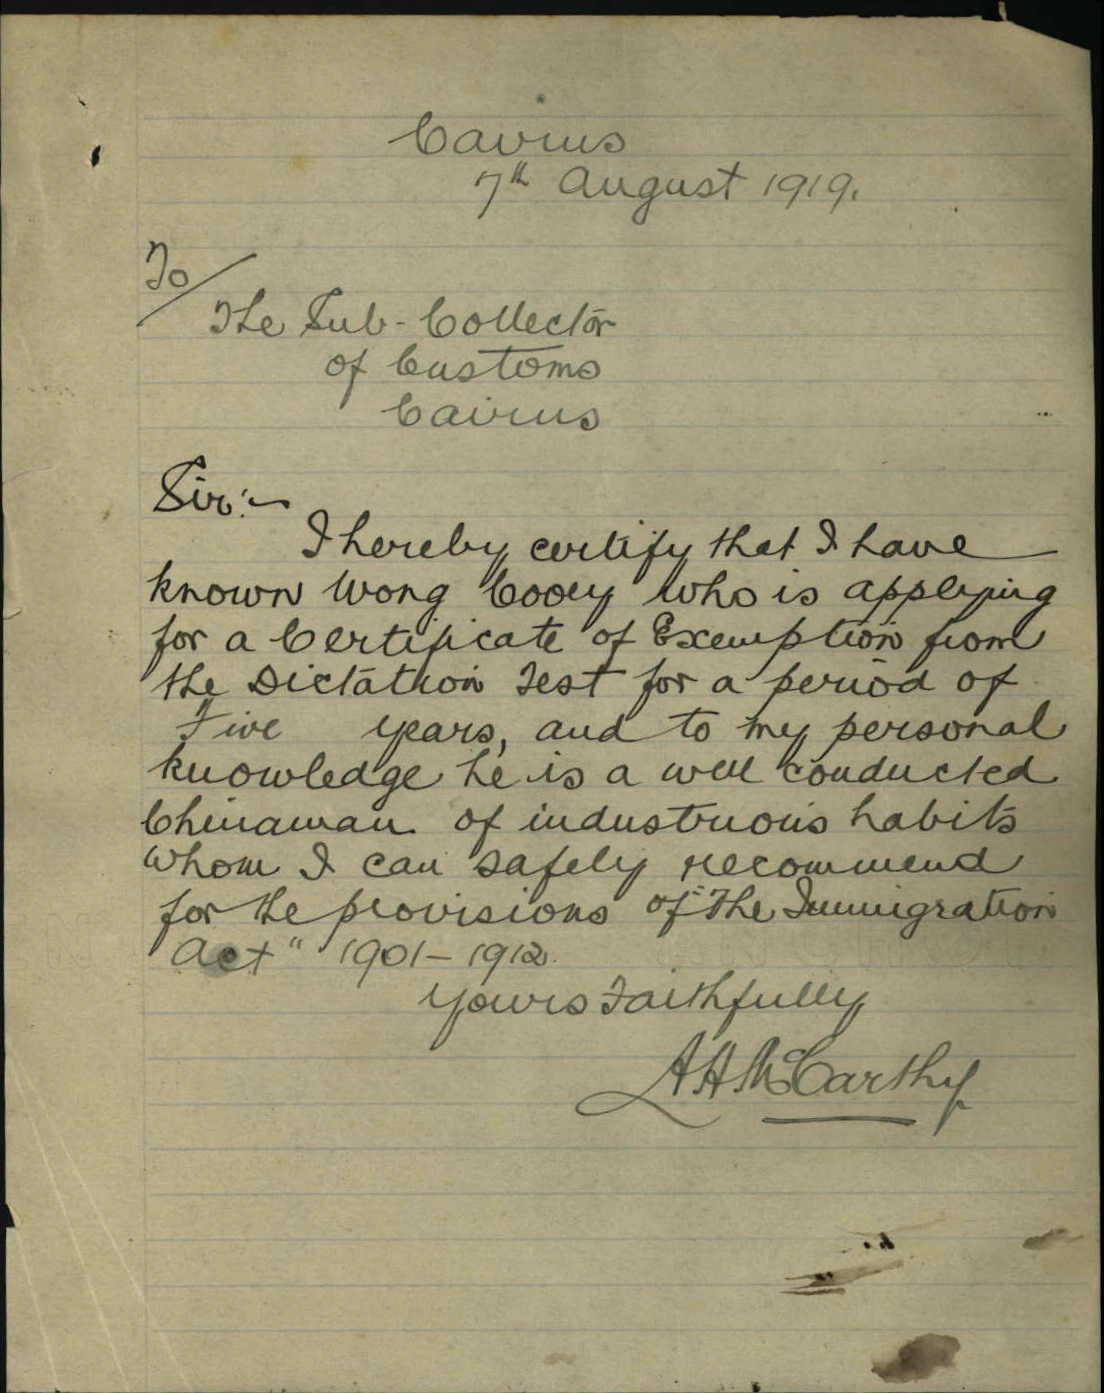 Cairns
7th August 1919.
To/
The Sub-Collector
of Customs
Cairns
Sir:-
I hereby certify that I have
known Wong Cooey who is applying
for a Certificate of Exemption from
the Dictation Test for a period of
Five years, and to my personal
knowledge he is a well conducted
Chinaman of industrious habits
whom I can safely recommend
for the provisions of "The Immigration
Act" 1901-1912.
Yours Faithfully
A A McCarthy